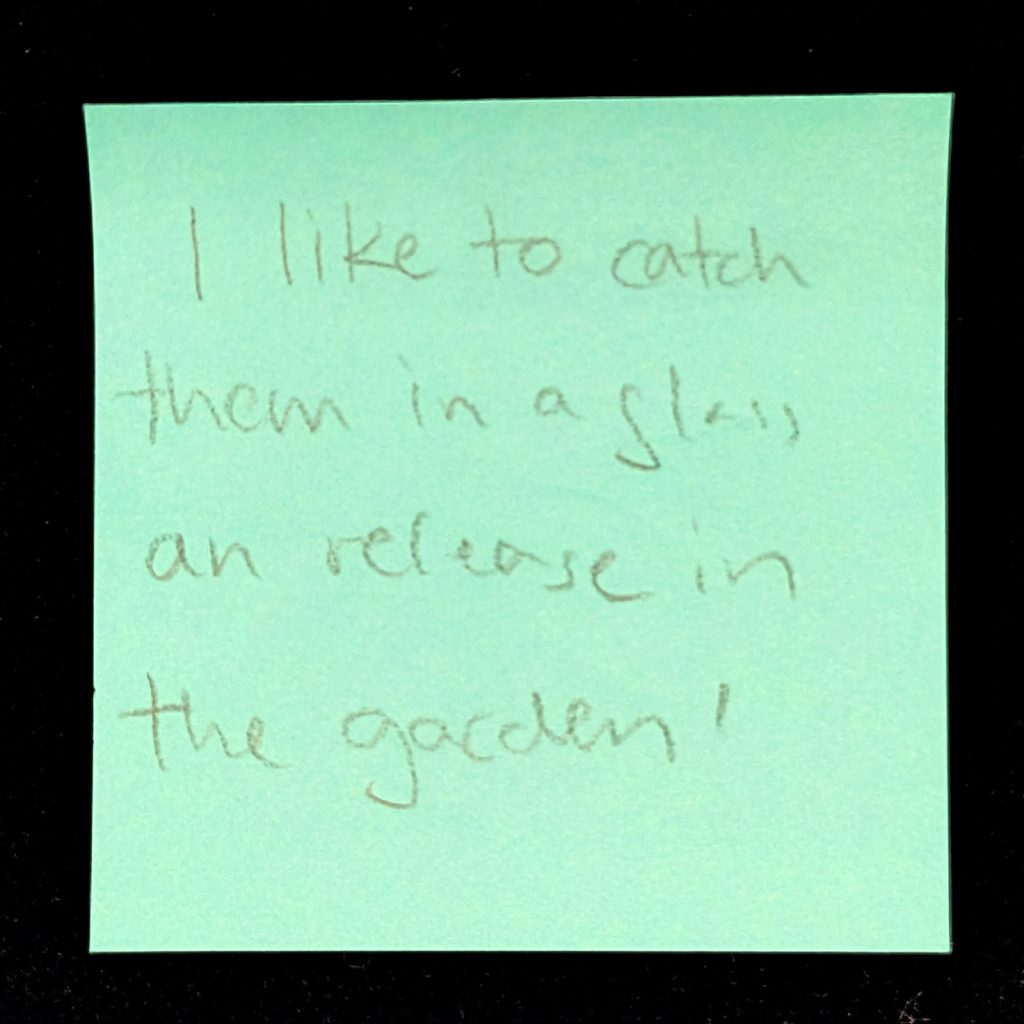 I like to catch
them in a glass
an release in
the garden!